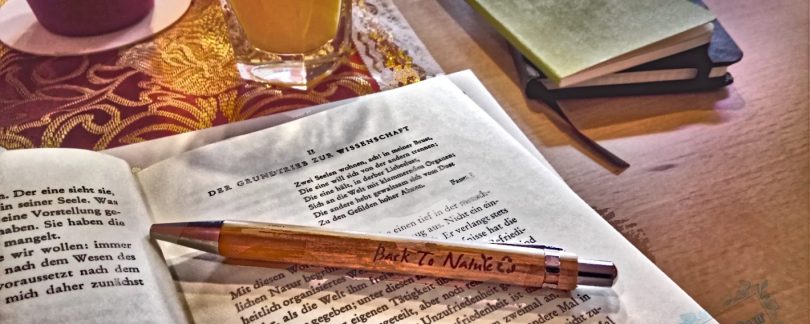 a. Der eine sieht sie,
in seiner Seele. Was
eine Vorstellung ge-
haben. Sie haben die
mangelt.
wir wollen: immer
nach dem Wesen des
voraussetzt nach dem
mich daher zunächst
II
DER GRUNDTRIEB ZUR WISSENSCHAFT
Zwei Seelen wohnen, ach! in meiner Brust,
Die eine will sich von der andern trennen;
Die eine hält, in derber Liebeslust,
Sich an die Welt mit klammernden Organen;
Die andere hebt gewaltsam sich vom Dust
Zu den Gefilden hoher Ahnen.
Faust I
einen tief in der mensch-
aus. Nicht ein ein-
Er verlangt stets
hat die
Back To Nature
Mit diesen Wor
lichen Natur begrün
beitlich organisiertes We
als die Welt ihm freiw
gegeben; unter diesen
eigenen Tätigkeit über
aber noch
Unzufriedenheit
zweiten anderen Mal in